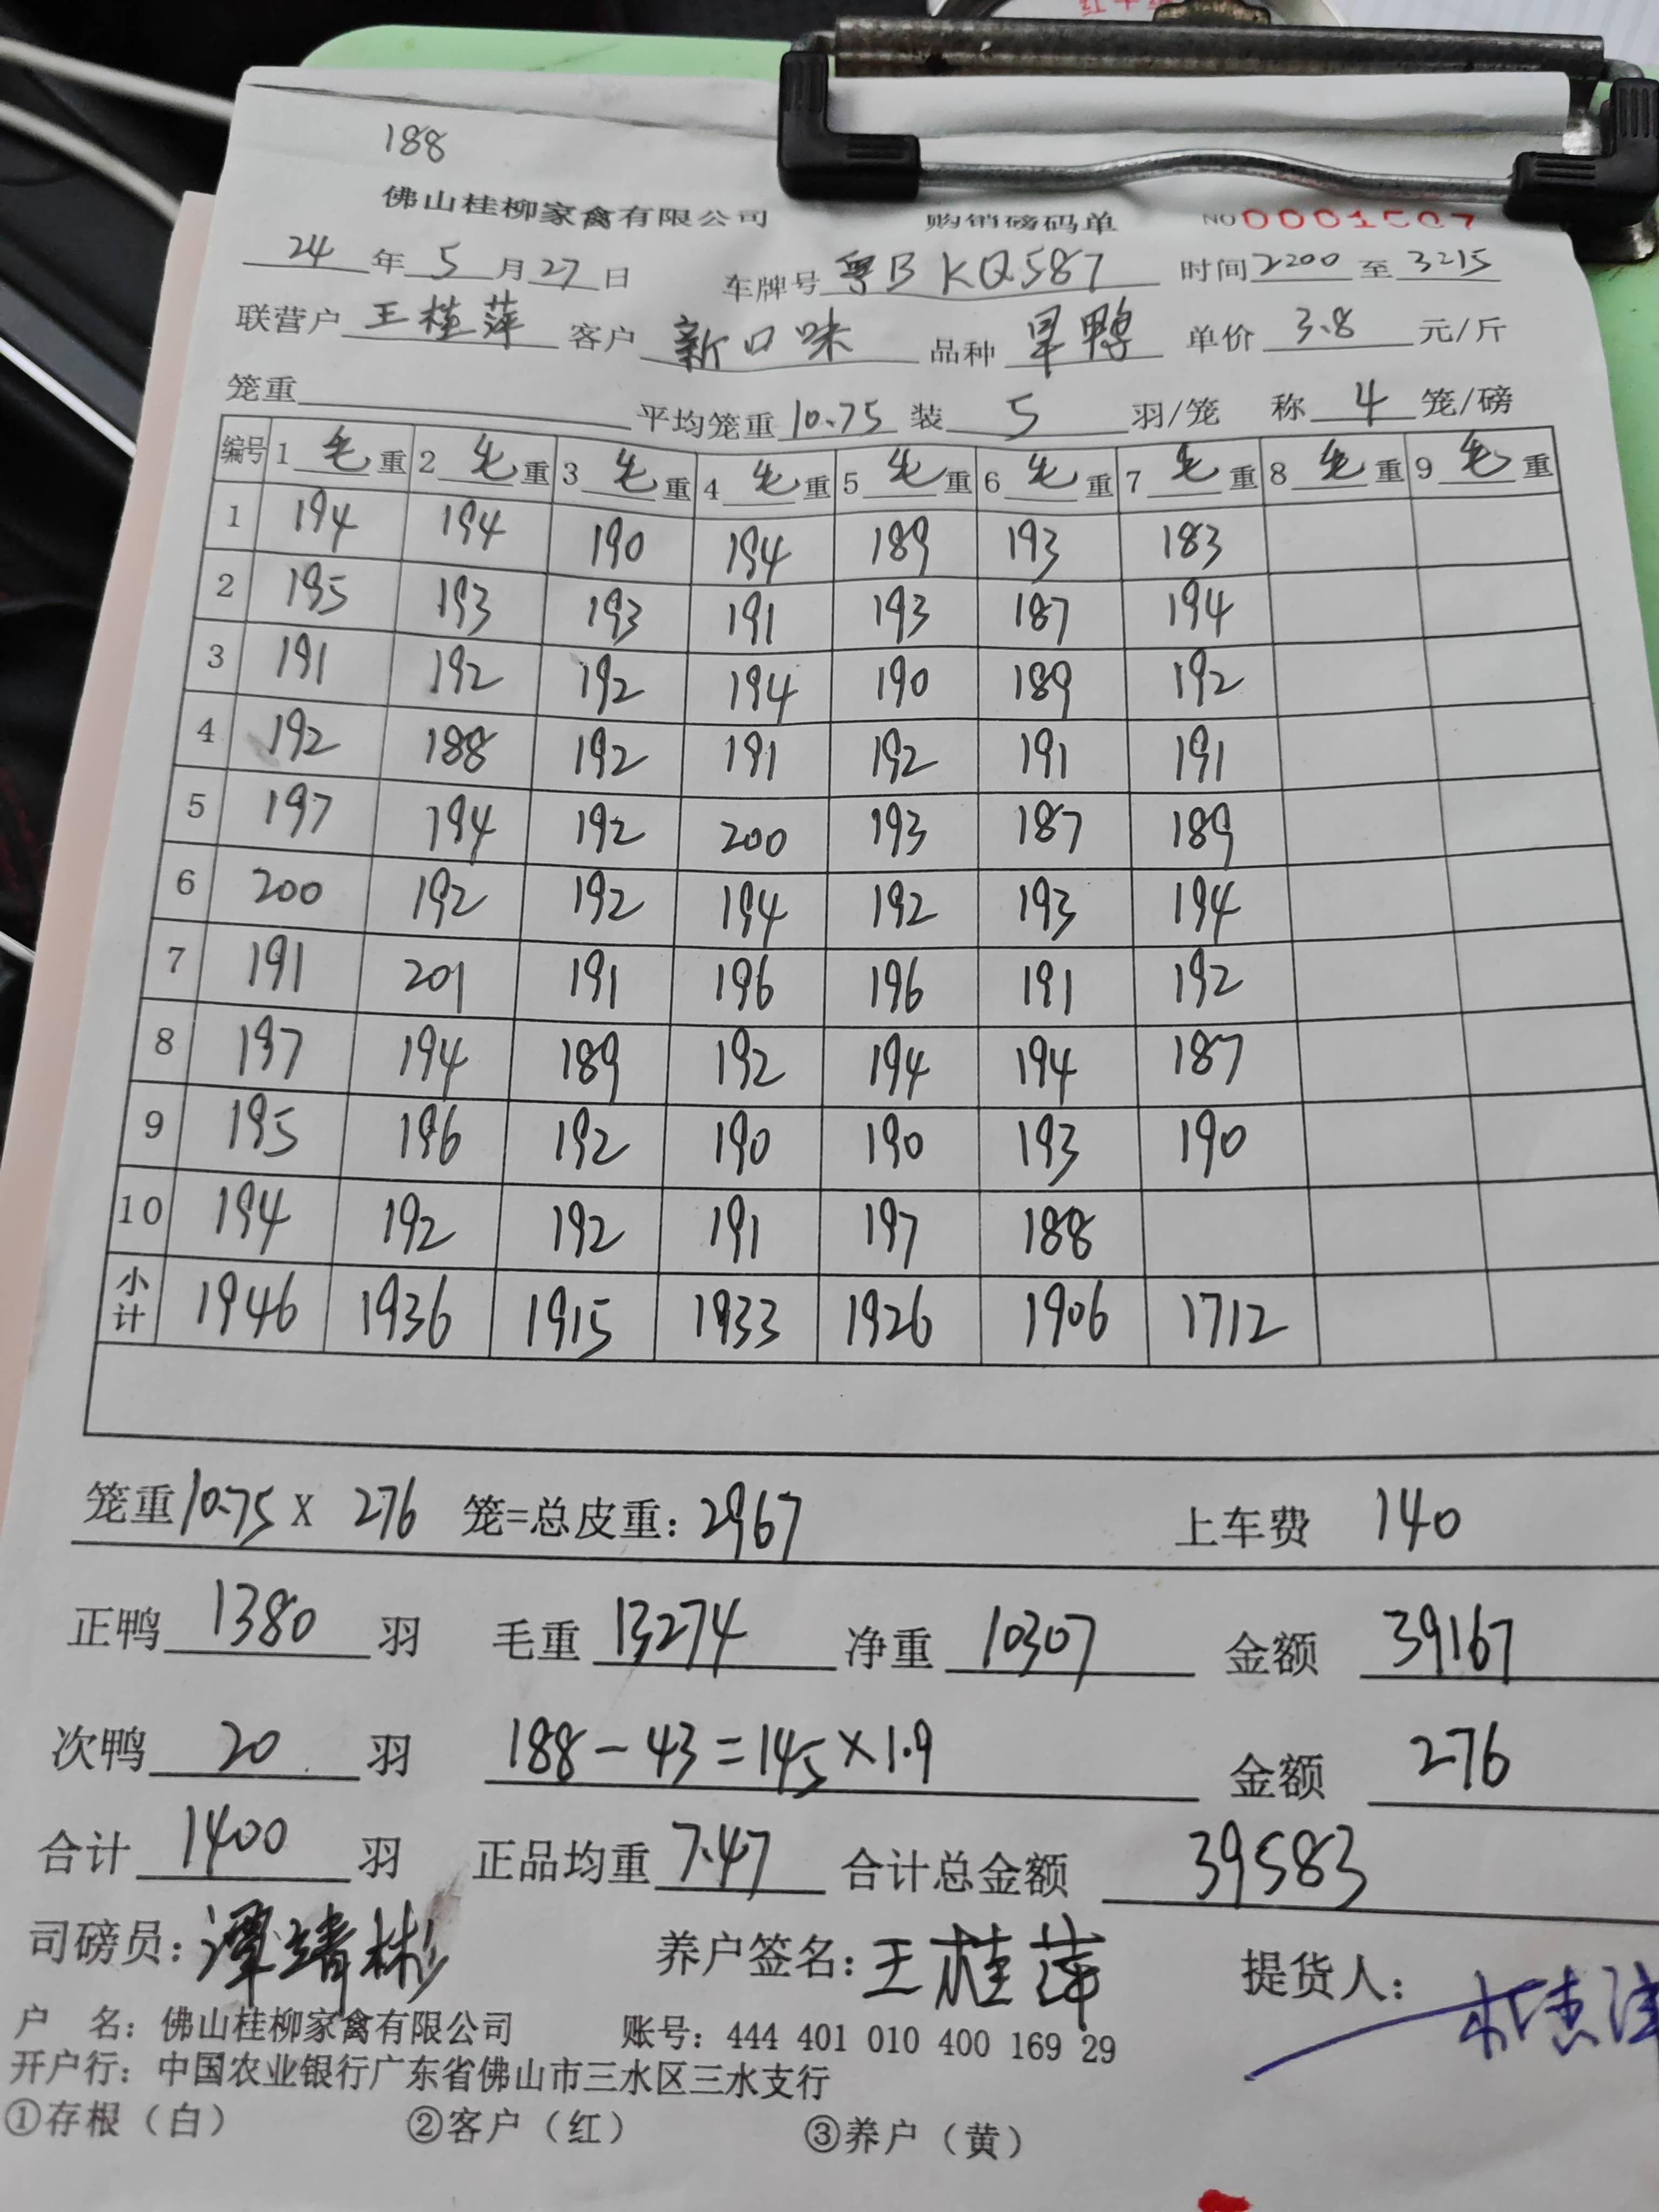 188
佛山桂柳家禽有限公司 购销磅码单 NO
24年5月27日 车牌号粤B KQ587 时间2200至3215
联营户王桂萍 客户新口味 品种旱鸭 单价3.8元/斤
笼重 平均笼重10.75装5羽/笼 称4笼/磅
编号 1毛重 2毛重 3毛重 4毛重 5毛重 6毛重 7毛重 8毛重 9毛重
1 194 194 190 194 189 193 183
2 195 193 193 191 193 187 194
3 191 192 192 194 190 189 192
4 192 188 192 191 192 191 191
5 197 194 192 200 193 187 189
6 200 192 192 194 192 193 194
7 191 201 191 196 196 191 192
8 197 194 189 192 194 194 187
9 195 196 192 190 190 193 190
10 194 192 192 191 197 188
小计 1946 1936 1915 1933 1926 1906 1712
笼重10.75X 276 笼=总皮重：2967 上车费 140
正鸭1380羽 毛重13274 净重10307 金额39167
次鸭20羽 188-43=145×1.9 金额276
合计1400羽 正品均重7.47 合计总金额39583
司磅员：谭靖彬 养户签名：王桂萍 提货人：
户 名：佛山桂柳家禽有限公司 账号：444 401 010 400 169 29
开户行：中国农业银行广东省佛山市三水区三水支行
①存根（白） ②客户（红） ③养户（黄）